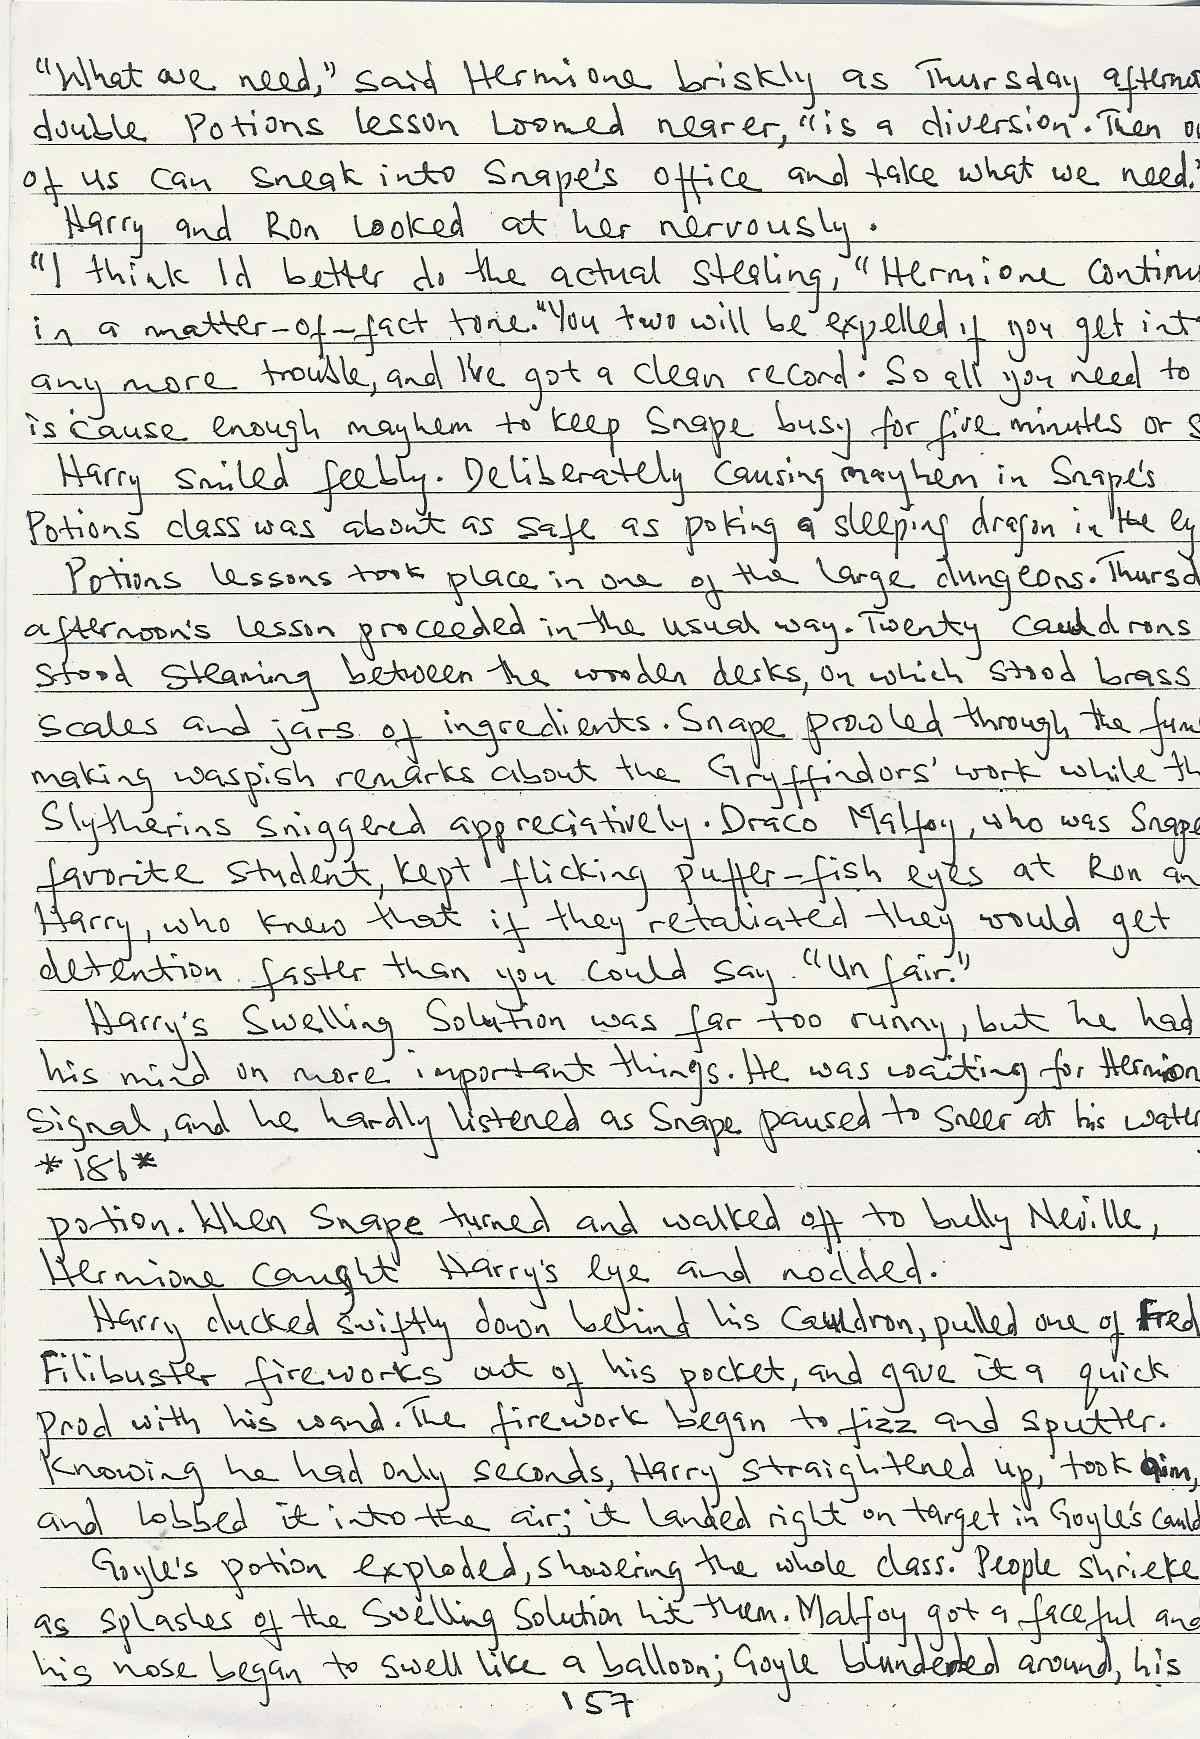 "What we need," said Hermione briskly as Thursday afterno
double Potions lesson loomed nearer, "is a diversion. Then o
of us can sneak into Snape's office and take what we need."
Harry and Ron looked at her nervously.
"I think Id better do the actual stealing," Hermione continu
in a matter-of-fact tone. "You two will be expelled if you get int
any more trouble, and I've got a clean record. So all you need to
is cause enough mayhem to keep Snape busy for five minutes or s
Harry smiled feebly. Deliberately causing mayhem in Snape's
Potions class was about as safe as poking a sleeping dragon in the ey
Potions lessons took place in one of the large dungeons. Thursd
afternoon's lesson proceeded in the usual way. Twenty cauldrons
stood steaming between the wooden desks, on which stood brass
scales and jars of ingredients. Snape prowled through the fum
making waspish remarks about the Gryffindors' work while th
Slytherins sniggered appreciatively. Draco Malfoy, who was Snape
favorite student, kept flicking puffer-fish eyes at Ron an
Harry, who knew that if they retaliated they would get
detention faster than you could say "Unfair."
Harry's Swelling Solution was far too runny, but he had
his mind on more important things. He was waiting for Hermion
signal, and he hardly listened as Snape paused to sneer at his water
*186*
potion. When Snape turned and walked off to bully Neville,
Hermione caught Harry's eye and nodded.
Harry ducked swiftly down behind his cauldron, pulled one of Fred
Filibuster fireworks out of his pocket, and gave it a quick
prod with his wand. The firework began to fizz and sputter.
Knowing he had only seconds, Harry straightened up, took aim,
and lobbed it into the air; it landed right on target in Goyle's cauld
Goyle's potion exploded, showering the whole class. People shrieke
as splashes of the Swelling Solution hit them. Malfoy got a faceful and
his nose began to swell like a balloon; Goyle blundered around, his
157